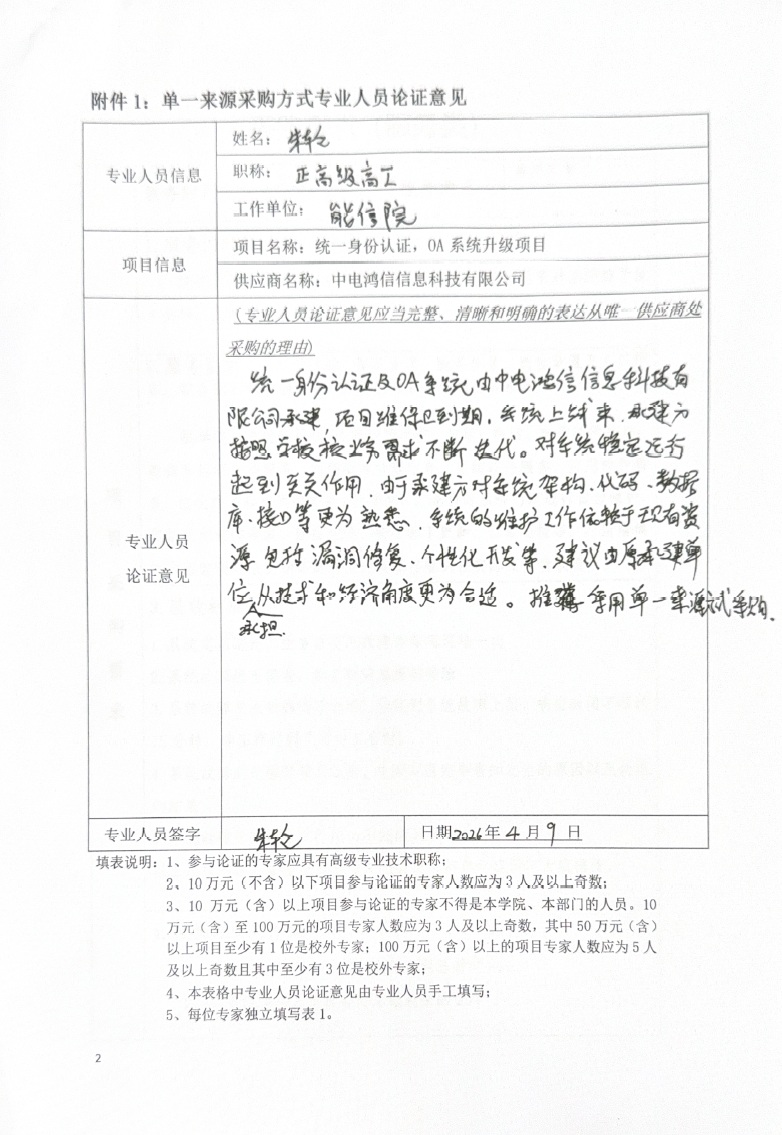 附件 1：单一来源采购方式专业人员论证意见
专业人员信息
姓名：朱轮
职称：正高级高工
工作单位：能信院
项目信息
项目名称：统一身份认证，OA 系统升级项目
供应商名称：中电鸿信信息科技有限公司
专业人员
论证意见
(专业人员论证意见应当完整、清晰和明确的表达从唯一供应商处
采购的理由)
统一身份认证及OA系统由中电鸿信信息科技有
限公司承建，项目维保已到期，系统上线来，承建方
按照学校校业务需求不断迭代。对系统稳定运行
起到关作用，由于承建方对系统架构、代码、数据
库、接口等更为熟悉，系统的维护工作依赖于现有资
源 包括漏洞修复、个性化开发等，建议由原承建单
位承担从技术和经济角度更为合适。推荐采用单一来源式采购.
专业人员签字
朱轮
日期2026年4月9日
填表说明：1、参与论证的专家应具有高级专业技术职称；
2、10 万元（不含）以下项目参与论证的专家人数应为 3 人及以上奇数；
3、10 万元（含）以上项目参与论证的专家不得是本学院、本部门的人员。10
万元（含）至 100 万元的项目专家人数应为 3 人及以上奇数，其中 50 万元（含）
以上项目至少有 1 位是校外专家；100 万元（含）以上的项目专家人数应为 5 人
及以上奇数且其中至少有 3 位是校外专家；
4、本表格中专业人员论证意见由专业人员手工填写；
5、每位专家独立填写表 1。
2